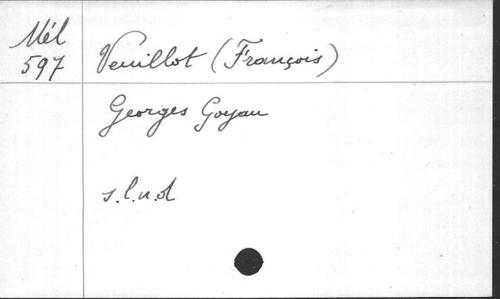 Mél
597
Veuillot (François)
Georges Goyau
s.l.n.d